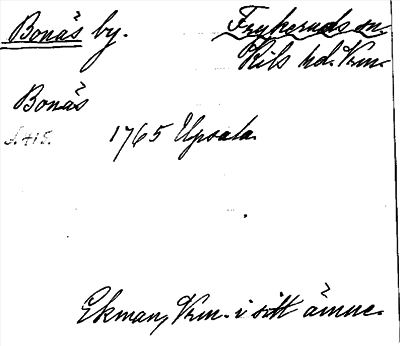 Bonäs by. Frykeruds sn.
Kils hd. Vrm.
Bonäs
s. 415. 1765 Upsala
Ekman, Vrm. i sitt ämne.